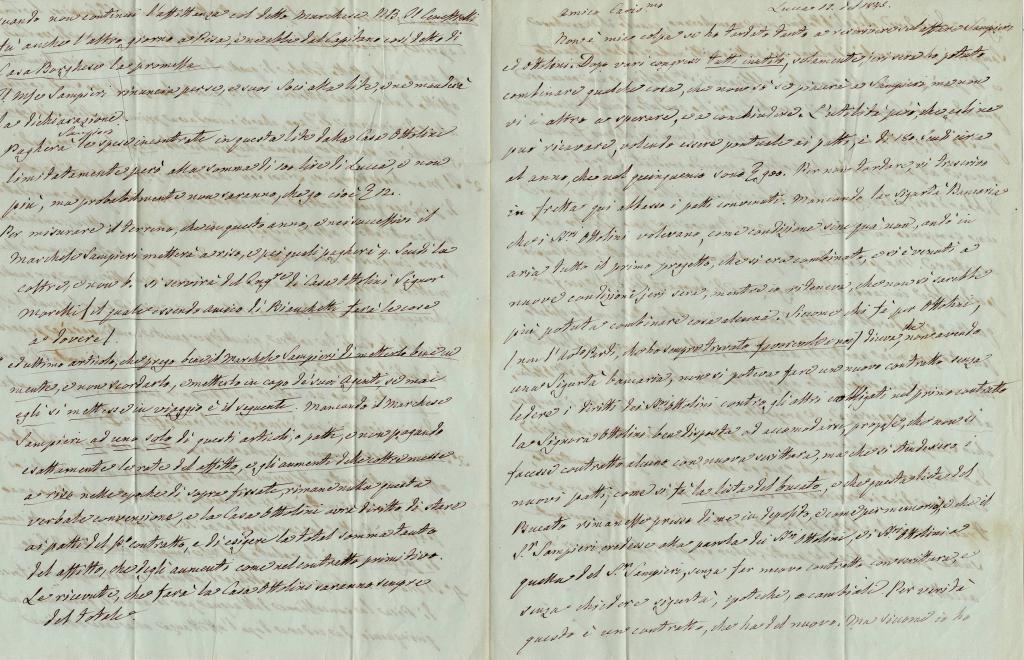 quando non continui l'affittanza col detto Marchese N.B. Il
fu anche l'altro giorno a Pisa, e ne ebbe dal Capitano così detto di
Casa Borghese la promessa
Il Mse Sampieri rinuncia per se, e suoi Soci alla lite, e ne manderà
la dichiarazione.
Pagherà Sampieri le spese incontrate in questa lite dalla Casa Ottolini
limitatamente però alla somma di 100 lire di Lucca, e non
più, ma probabilmente non saranno, che 90 cioè 12.
Per misurare il terreno, che in questo anno, e nei successivi il
Marchese Sampieri metterà a riso, e pei quali pagherà 4 Scudi la
coltre, e non 6. si servirà del Ingre di Casa Ottolini Signor
Marchi / il quale essendo amico di Bianchetti farà le cose
a dovere /
ed ultimo articolo, che prego bene il Marchese Sampieri di metterlo bene in
mente, e non scordarlo, e metterlo in capo de' suoi Agenti, se mai
egli si mettesse in viaggio è il seguente. Mancando il Marchese
Sampieri ad uno solo di questi articoli, o patti, e non pagando
esattamente le rate del affitto, e gli aumenti delle coltre messe
a riso nelle epoche di sopra fissate, rimane nulla questa
verbale convenzione, e la Casa Ottolini avrà diritto di stare
ai patti del po contratto, e di esigere la total somma tanto
del affitto, che degli aumenti come nel contratto primitivo
Le ricevute, che farà la Casa Ottolini saranno sempre
del totale.
Amico Carissmo Lucca 12. 1845.
Non è mia colpa se ho tardato tanto a riscrivervi sul affare Sampieri,
ed Ottolini. Dopo vari congressi tutti inutili, solamente jeri sera ho potuto
combinare qualche cosa, che non sò se piacerà a Sampieri, ma non
vi è altro a sperare, e a conchiudere. L'utilità però, che egli ne
può ricavare, volendo essere puntuale ai patti, è di 180. Scudi circa
al anno, che nel quinquenio sono 900. Per non tardare, vi trascrivo
in fretta qui abbasso i patti convenuti. Mancando la sigurtà Bancaria
che i Sri Ottolini volevano, come condizione sine qua non, andò in
aria tutto il primo progetto, che si era combinato, e si è venuti a
nuove condizioni jeri sera, mentre io riteneva, che non si sarebbe
più potuta combinare cosa alcuna. Siccome chi fa per Ottolini,
/ non l'Avto Bordi, che ho sempre trovato favorevole a noi / diceva che non avendo
una Sigurtà bancaria, non si poteva fare un nuovo contratto senza
ledere i diritti dei Sri Ottolini contro gli altri coobbligati nel primo contratto
la Signora Ottolini ben disposta ad accomodarsi propose, che non si
facesse contratto alcuno con nuova scrittura, ma che si stendessero i
nuovi patti, come si fà la lista del bucato, e che questa lista del
Bucato rimanesse presso di me in deposito, e come per memoria, che il
Sr Sampieri credesse alla parola dei Sri Ottolini, ed i Sri Ottolini a
quella del Sr Sampieri, senza far nuovo contratto con scrittura, e
senza chiedere sigurtà, ipoteche, o cambiali. Per verità
questo è un contratto, che ha del nuovo. Ma siccome io ho